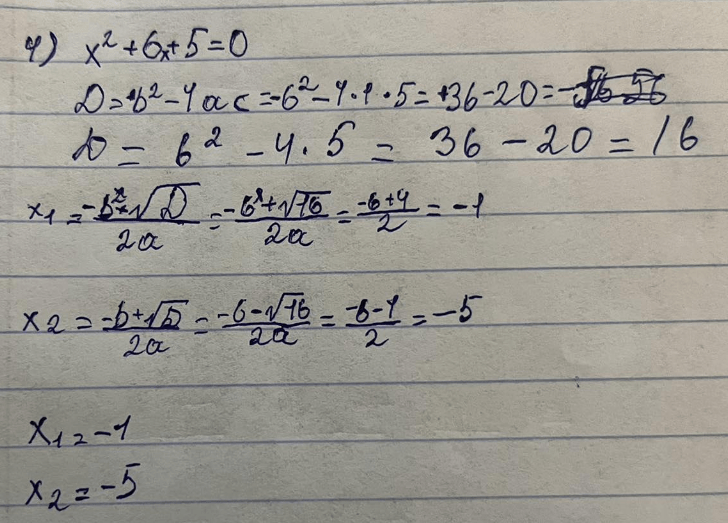 4) x² + 6x + 5 = 0
D = b² - 4ac = -6² - 4·1·5 = +36 - 20 =
D = 6² - 4·5 = 36 - 20 = 16
x₁ = (-b + √D)/2a = (-6 + √16)/2a = (-6+4)/2 = -1
x₂ = (-b + √D)/2a = (-6 - √16)/2a = (-6-4)/2 = -5
x₁ = -1
x₂ = -5